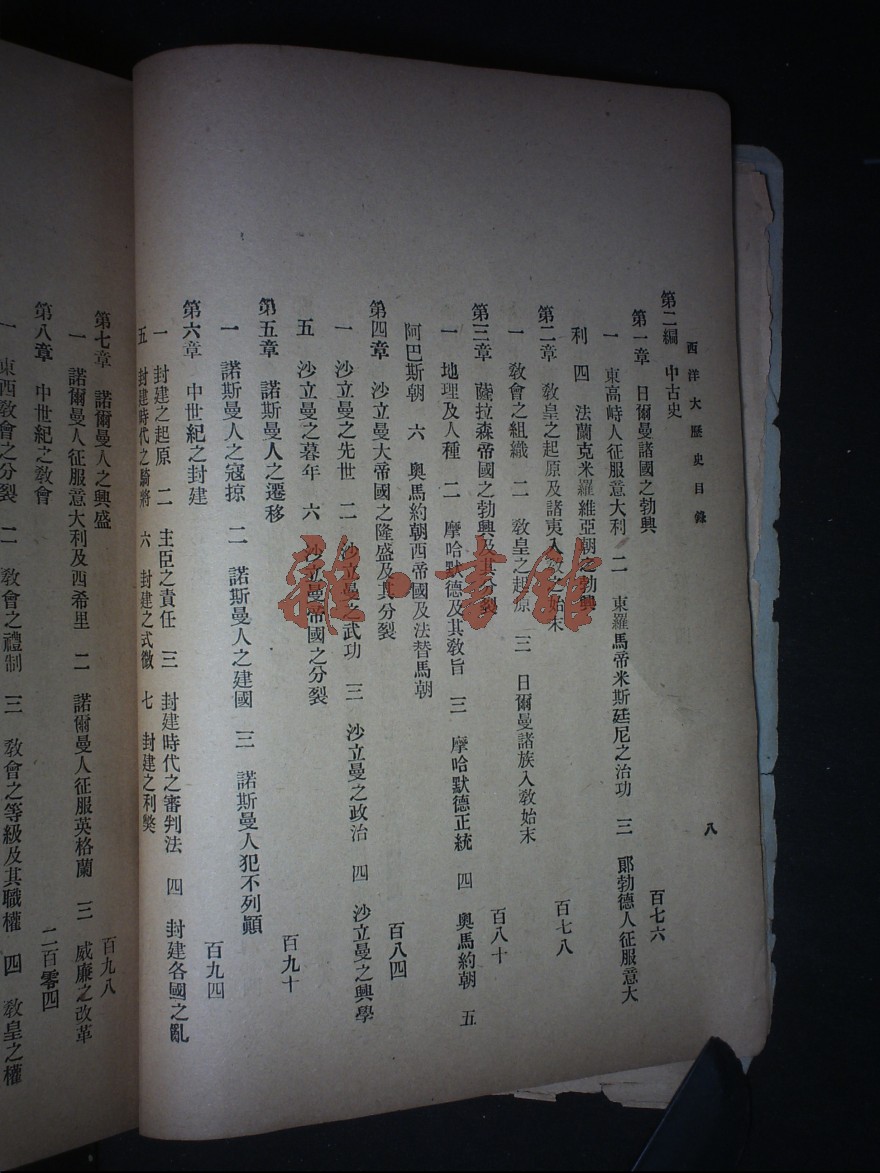 西洋大歷史目錄
八
第二編　中古史
第一章　日爾曼諸國之勃興　百七六
一　東高峙人征服意大利　二　東羅馬帝米斯廷尼之治功　三　郞勃德人征服意大
利　四　法蘭克米羅維亞朝之勃興
第二章　敎皇之起原及諸夷入敎之始末　百七八
一　敎會之組織　二　敎皇之起原　三　日爾曼諸族入敎始末
第三章　薩拉森帝國之勃興及其分裂　百八十
一　地理及人種　二　摩哈默德及其敎旨　三　摩哈默德正統　四　奧馬約朝　五
阿巴斯朝　六　奧馬約朝西帝國及法替馬朝
第四章　沙立曼大帝國之隆盛及其分裂　百八四
一　沙立曼之先世　二　沙立曼之武功　三　沙立曼之政治　四　沙立曼之興學
五　沙立曼之暮年　六　沙立曼帝國之分裂
第五章　諾斯曼人之遷移　百九十
一　諾斯曼人之寇掠　二　諾斯曼人之建國　三　諾斯曼人犯不列顚
第六章　中世紀之封建　百九四
一　封建之起原　二　主臣之責任　三　封建時代之審判法　四　封建各國之亂
五　封建時代之騎將　六　封建之式微　七　封建之利獘
第七章　諾爾曼人之興盛　百九八
一　諾爾曼人征服意大利及西希里　二　諾爾曼人征服英格蘭　三　威廉之改革
第八章　中世紀之敎會　二百零四
一　東西敎會之分裂　二　敎會之禮制　三　敎會之等級及其職權　四　敎皇之權
雜·書館